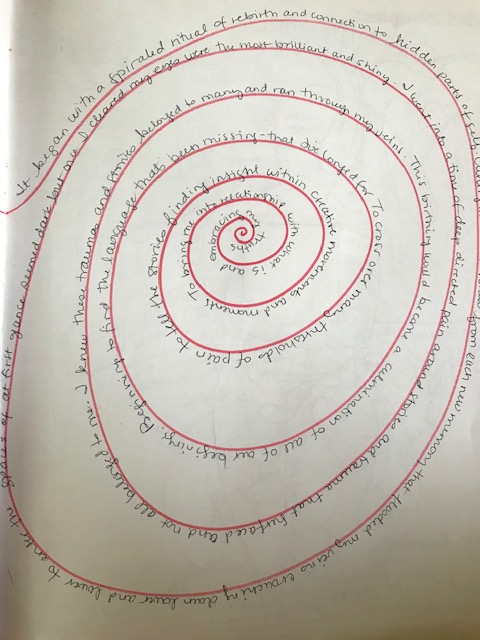 It began with a spiraled ritual of rebirth and connection to hidden parts of self
from each new memory that flooded my veins crouching down lower and lower to enter the spaces of at first glance seemed dark but once I cleared my eyes were the most brilliant and shiny. I went into a time of deep directed pain around stories and trauma that surfaced and not all belonged to me. I knew these traumas and stories belonged to many and ran through my veins. This birthing would become a culmination of all of our beginings. Beginning to find the language that's been missing - that longed for To cross over many thresholds of pain to tell the stories finding insight within creative movements and moments To bring me into relationship with what is and embracing my truths